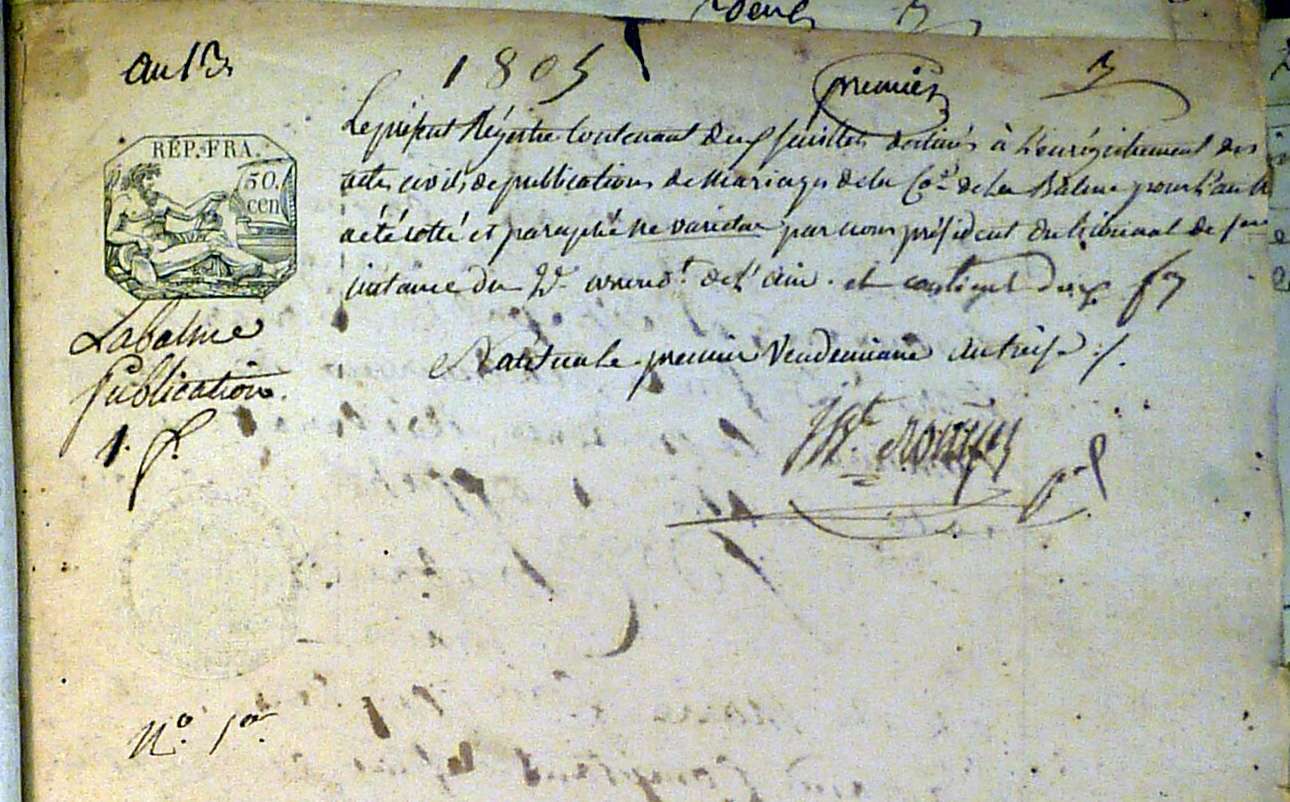 an 13
1805
premier
RÉP. FRA.
50.
cen
Le présent Régistre Contenant deux feuilles destinés à L'enrégistrement des
actes civils de publications de Mariages de la Cne. de La Balme pour L'an
a été cotté et paraphé ne varietur par nous président du tribunal de 1ere
instance du 2e arrond.t de L'ain. et contient deux
Labalme
Publication.
Nantua le premier Vendemiaire an treize
1. f.
N.º 1er